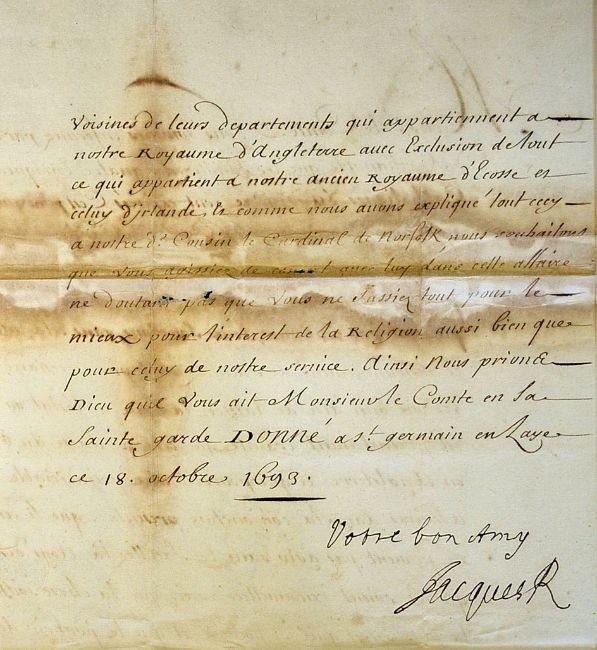 Voisines de leurs departements qui appartiennent a
nostre Royaume d'Angleterre avec Exclusion de tout
ce qui appartient a nostre ancien Royaume d'Ecosse et
celuy d'Irlande, et comme nous auons expliqué tout cecy
a nostre d.t Cousin le Cardinal de Norfolk nous souhaitons
que Vous agissiez de concert auec luy dans cette affaire
ne doutant pas que Vous ne fassiez tout pour le
mieux pour l'interest de la Religion aussi bien que
pour celuy de nostre seruice. Ainsi Nous prions
Dieu qu'il Vous ait Monsieur le Comte en sa
Sainte garde DONNÉ a S.t germain en Laye
ce 18. octobre 1693.
Votre bon Amy
Jacques R